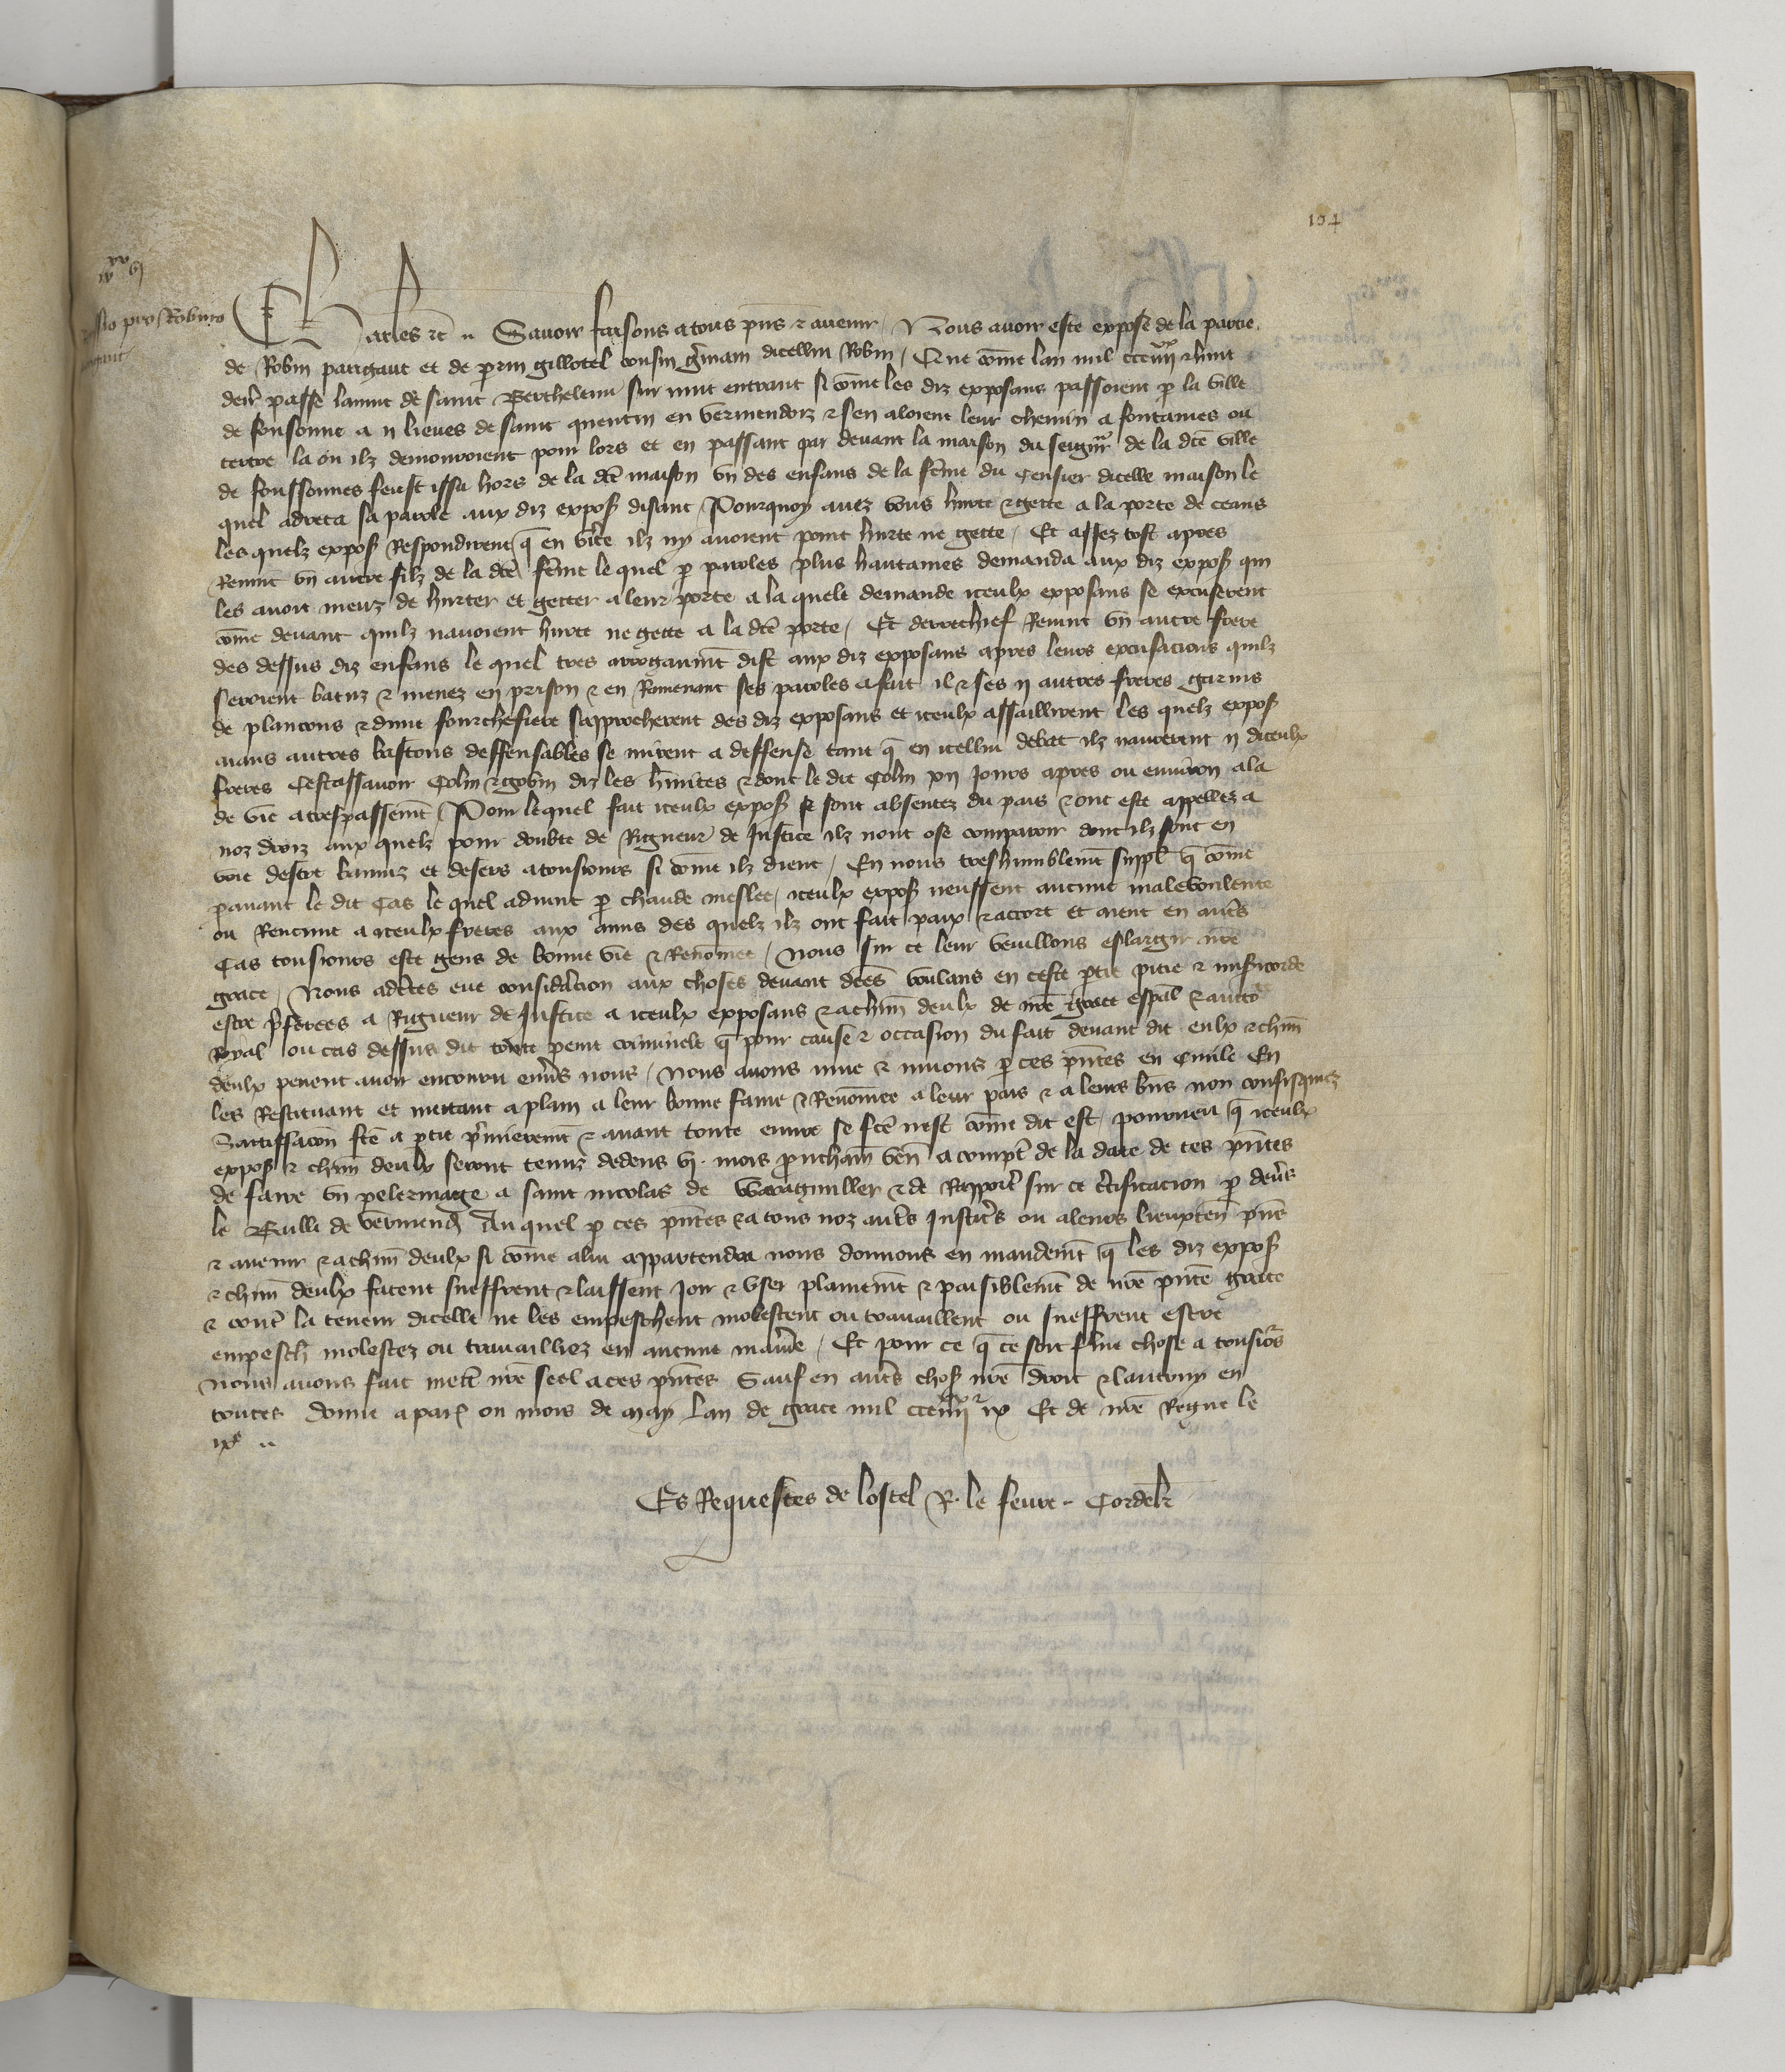 104
Charles etc Savoir faisons a tous pns & avenir / Nous avoir este expose de la partie
de Robin parigaut et de perrin gillotel cousin gmain dicellui Robin / Que come lan mil ccc iiiixx & huit
derr passe lanuit de saint Berthelemi sur nuit entrant si come les diz exposans passoient p la ville
de fonsomme a ii lieues de saint quentin en vermendoiz & sen aloient leur chemin a fontaines ou
tertre la ou ilz demouroient pour lors et en passant par devant la maison du seignr de la dce ville
de fonssommes feust issu hors de la dce maison un des enfans de la feme du Censier dicelle maison le
quel adreca sa parole aux diz expos disant / Pourquoy avez vous hurte & gette a la porte de ceans
les quelz expos Respondirent q en vite ilz ny avoient point hurte ne gette / Et assez tost apres
Revint un autre filz de la dce feme le quel p paroles plus hautaines demanda aux diz expos qui
les avoit meuz de hurter et getter a leur porte a la quele demande iceulx exposans se excuserent
come devant quilz navoient hurte ne gette a la dce porte / Et derrechief Revint un autre frere
des dessus diz enfans le quel tres arrogaument dist aux diz exposans apres leurs excusacions quilz
seroient batuz & menez en prison & en Ramenant ses paroles a fait il & ses ii autres freres garnis
de plancons & dune fourchefiere sapprocherent des diz exposans et iceulx assaillirent les quelz expos
aians autres bastons deffensables se mirent a deffense tant q en icellui debat ilz navrerent ii diceulx
freres Cestassavoir Colin & gobin diz les hmites & dont le dit Colin xii Jours apres ou environ ala
de vie a trespassemt / Pour lequel fait iceulx expos se sont absentez du pais & ont este appellez a
noz droiz aux quelz pour doubte de Rigueur de Justice ilz nont ose comparoir dont ilz sont en
voie destre banniz et desers a tousiours si come ilz dient / En nous treshumblemt suppl q come
pavant le dit Cas le quel advint p chaude meslee / iceulx expos neussent aucune malevoulente
ou Rencune a iceulx freres aux amis des quelz ilz ont fait paix & accort et aient en auts
Cas tousiours este gens de bonne vie & Renomee / Nous sur ce leur veuillons eslargir nre
grace / Nous adctes eue consideracion aux choses devant dces voulans en ceste ptie pitie & misicorde
estre pferees a Rigueur de Justice a iceulx exposans & a chun deulx de nre grace espal & aucto
Royal ou cas dessus dit toute peine criminele q pour cause & occasion du fait devant dit eulx & chun
deulx pevent avoir encouru envs nous / Nous avons mue & muons p ces pntes en Civile En
les Restituant et mettant a plain a leur bonne fame & Renomee a leur pais & a leurs bns non confisquez
Sattiffacon fce a ptie pmieremt & avant toute euvre se fce nest come dit est / pourveu q iceulx
expos & chun deulx seront tenuz dedens vi mois prouchain ven a compt de la date de ces pntes
de faire un pelerinage a saint nicolas de Warengeville & de Rapport sur ce ctificacion p devs
le Bailli de vermend Au quel p ces pntes & a tous noz auts Justics ou a leurs lieuxten pns
& avenir & a chun deulx si come a lui appartendra nous donnons en mandemt q les diz expos
& chun deulx facent sueffrent & laissent Joir & user plainemt & paisiblemt de nre pnte grace
& cont la teneur dicelle ne les empeschent molestent ou travaillent ou sueffrent estre
empesch molestez ou travaillez en aucune maniere / Et pour ce q ce soit ferme chose a tousiors
Nous avons fait mett nre seel a ces pntes Sauf en auts chos nre droit & lautruy en
toutes Donne a paris ou mois de may Lan de grace mil ccc iiiixx ix Et de nre Regne le
ixe
Es Requestes de lostel R. le fevre - Cordelr